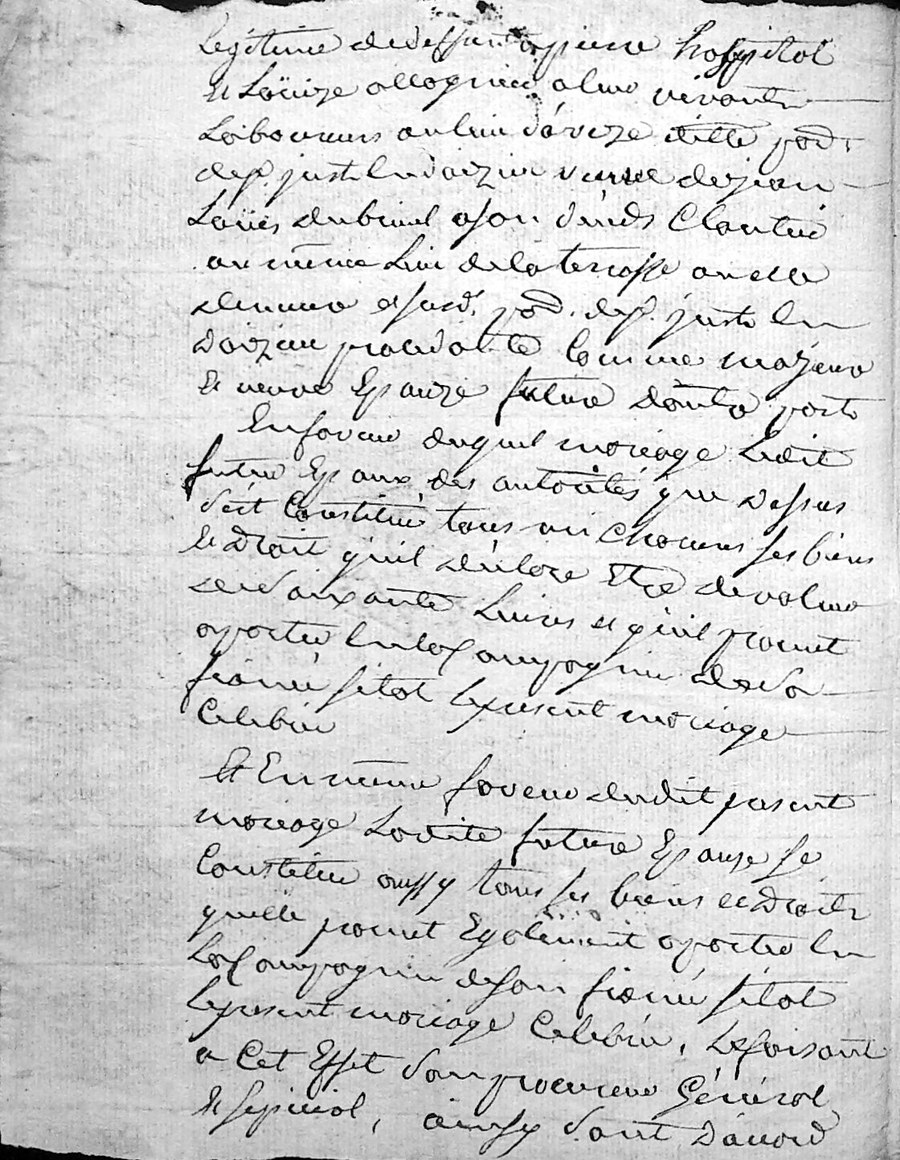 legitime de deffunt pierre hospital
et Loüize allognier a leur vivants
Laboureurs au lieu d'aveze icelle pard.
de p. just en doizieu veuve de jean
Loüis dubreuil a son déceds Cloutier
au même Lieu de la terrasse ou elle
demeure et susd. pard. de p. just en
doizieu procedante comme majeure
et veuve Epouze future d'autre part
En faveur duquel mariage Ledit
futur Epoux des autorités que dessus
s'est Constitué tous un chacuns ses biens
et Droit qu'il déclare Etre de valeur
de soixante Livres et qu'il promet
aporter en la Compagnie de sa
fiancée sitot le present mariage
Celebré
Et En même faveur dudit present
mariage Ladite future Epouse se
Constitue aussy tous ses biens et Droits
qu'elle promet Egalement aporter en
la Compagnie de son fiancé sitot
le present mariage Celebré, Le faisant
a Cet Effet son procureur Général
et special, ainsy sont d'accord